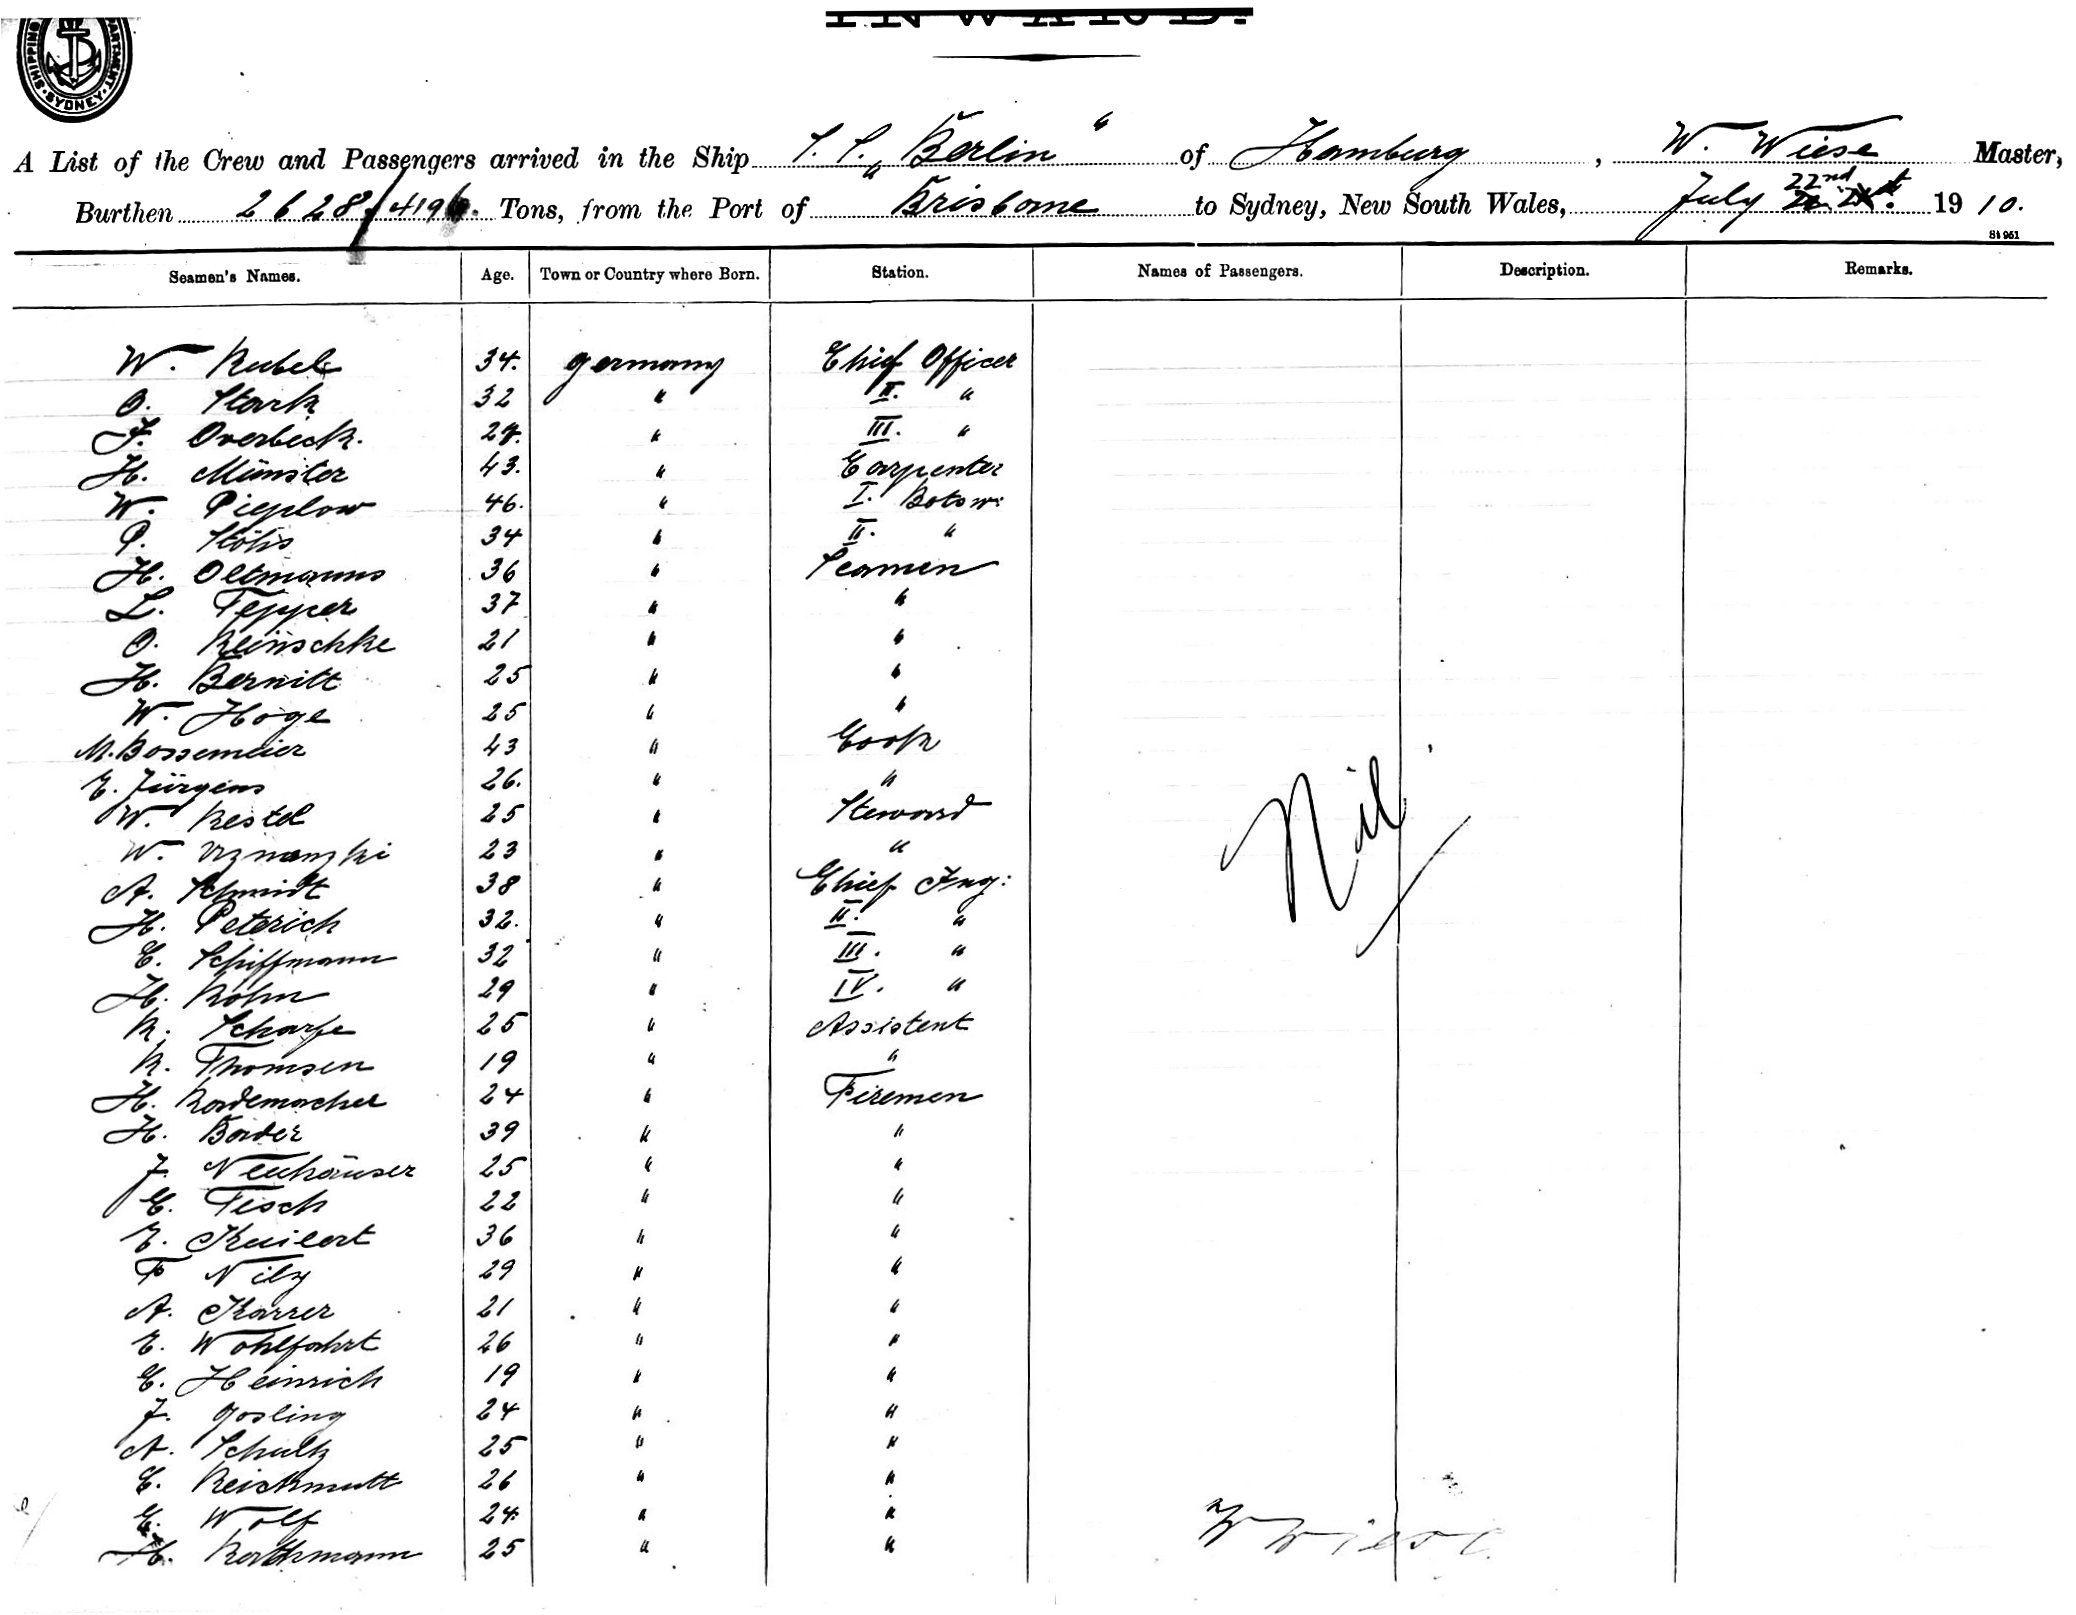 INWARD.
SHIPPING SYDNEY
A List of the Crew and Passengers arrived in the Ship S. S. „Berlin“ of Hamburg, W. Wiese Master,
Burthen 2628/4196. Tons, from the Port of Brisbane to Sydney, New South Wales, July 22nd 1910.
St 961
Seamen's Names. Age. Town or Country where Born. Station. Names of Passengers. Description. Remarks.
W. 34. Germany Chief Officer
O. Stark 32 " II. "
J. Overbeck. 27. " III. "
H. Münster 43. " Carpenter
W. Pieplow 46. " I. Botsw:
P. 34 " II. "
H. Oltmanns 36 " Seamen
L. Tepper 37 " "
O. Reinschke 21 " "
H. Bernitt 25 " "
W. Hoge 25 " "
M. Bossemeier 43 " Cook
E. Jürgens 26. " "
W. Restel 25 " Steward
W. 23 " "
A. Schmidt 38 " Chief Ing:
H. Peterich 32. " II. "
E. Schiffmann 32 " III. "
H. 29 " IV. "
K. Scharfe 25 " Assistent
K. Thomsen 19 " "
H. Rademacher 24 " Firemen
H. Bader 39 " "
J. Neuhäuser 25 " "
E. Tesch 22 " "
E. 36 " "
F 29 " "
A. Karrer 21 " "
E. Wohlfahrt 26 " "
E. Heinrich 19 " "
J. Gosling 24 " "
A. Schultz 25 " "
E. Reichmutt 26 " "
E. Wolf 24 " "
H. Rathmann 25 " "
Nil
W Wiese